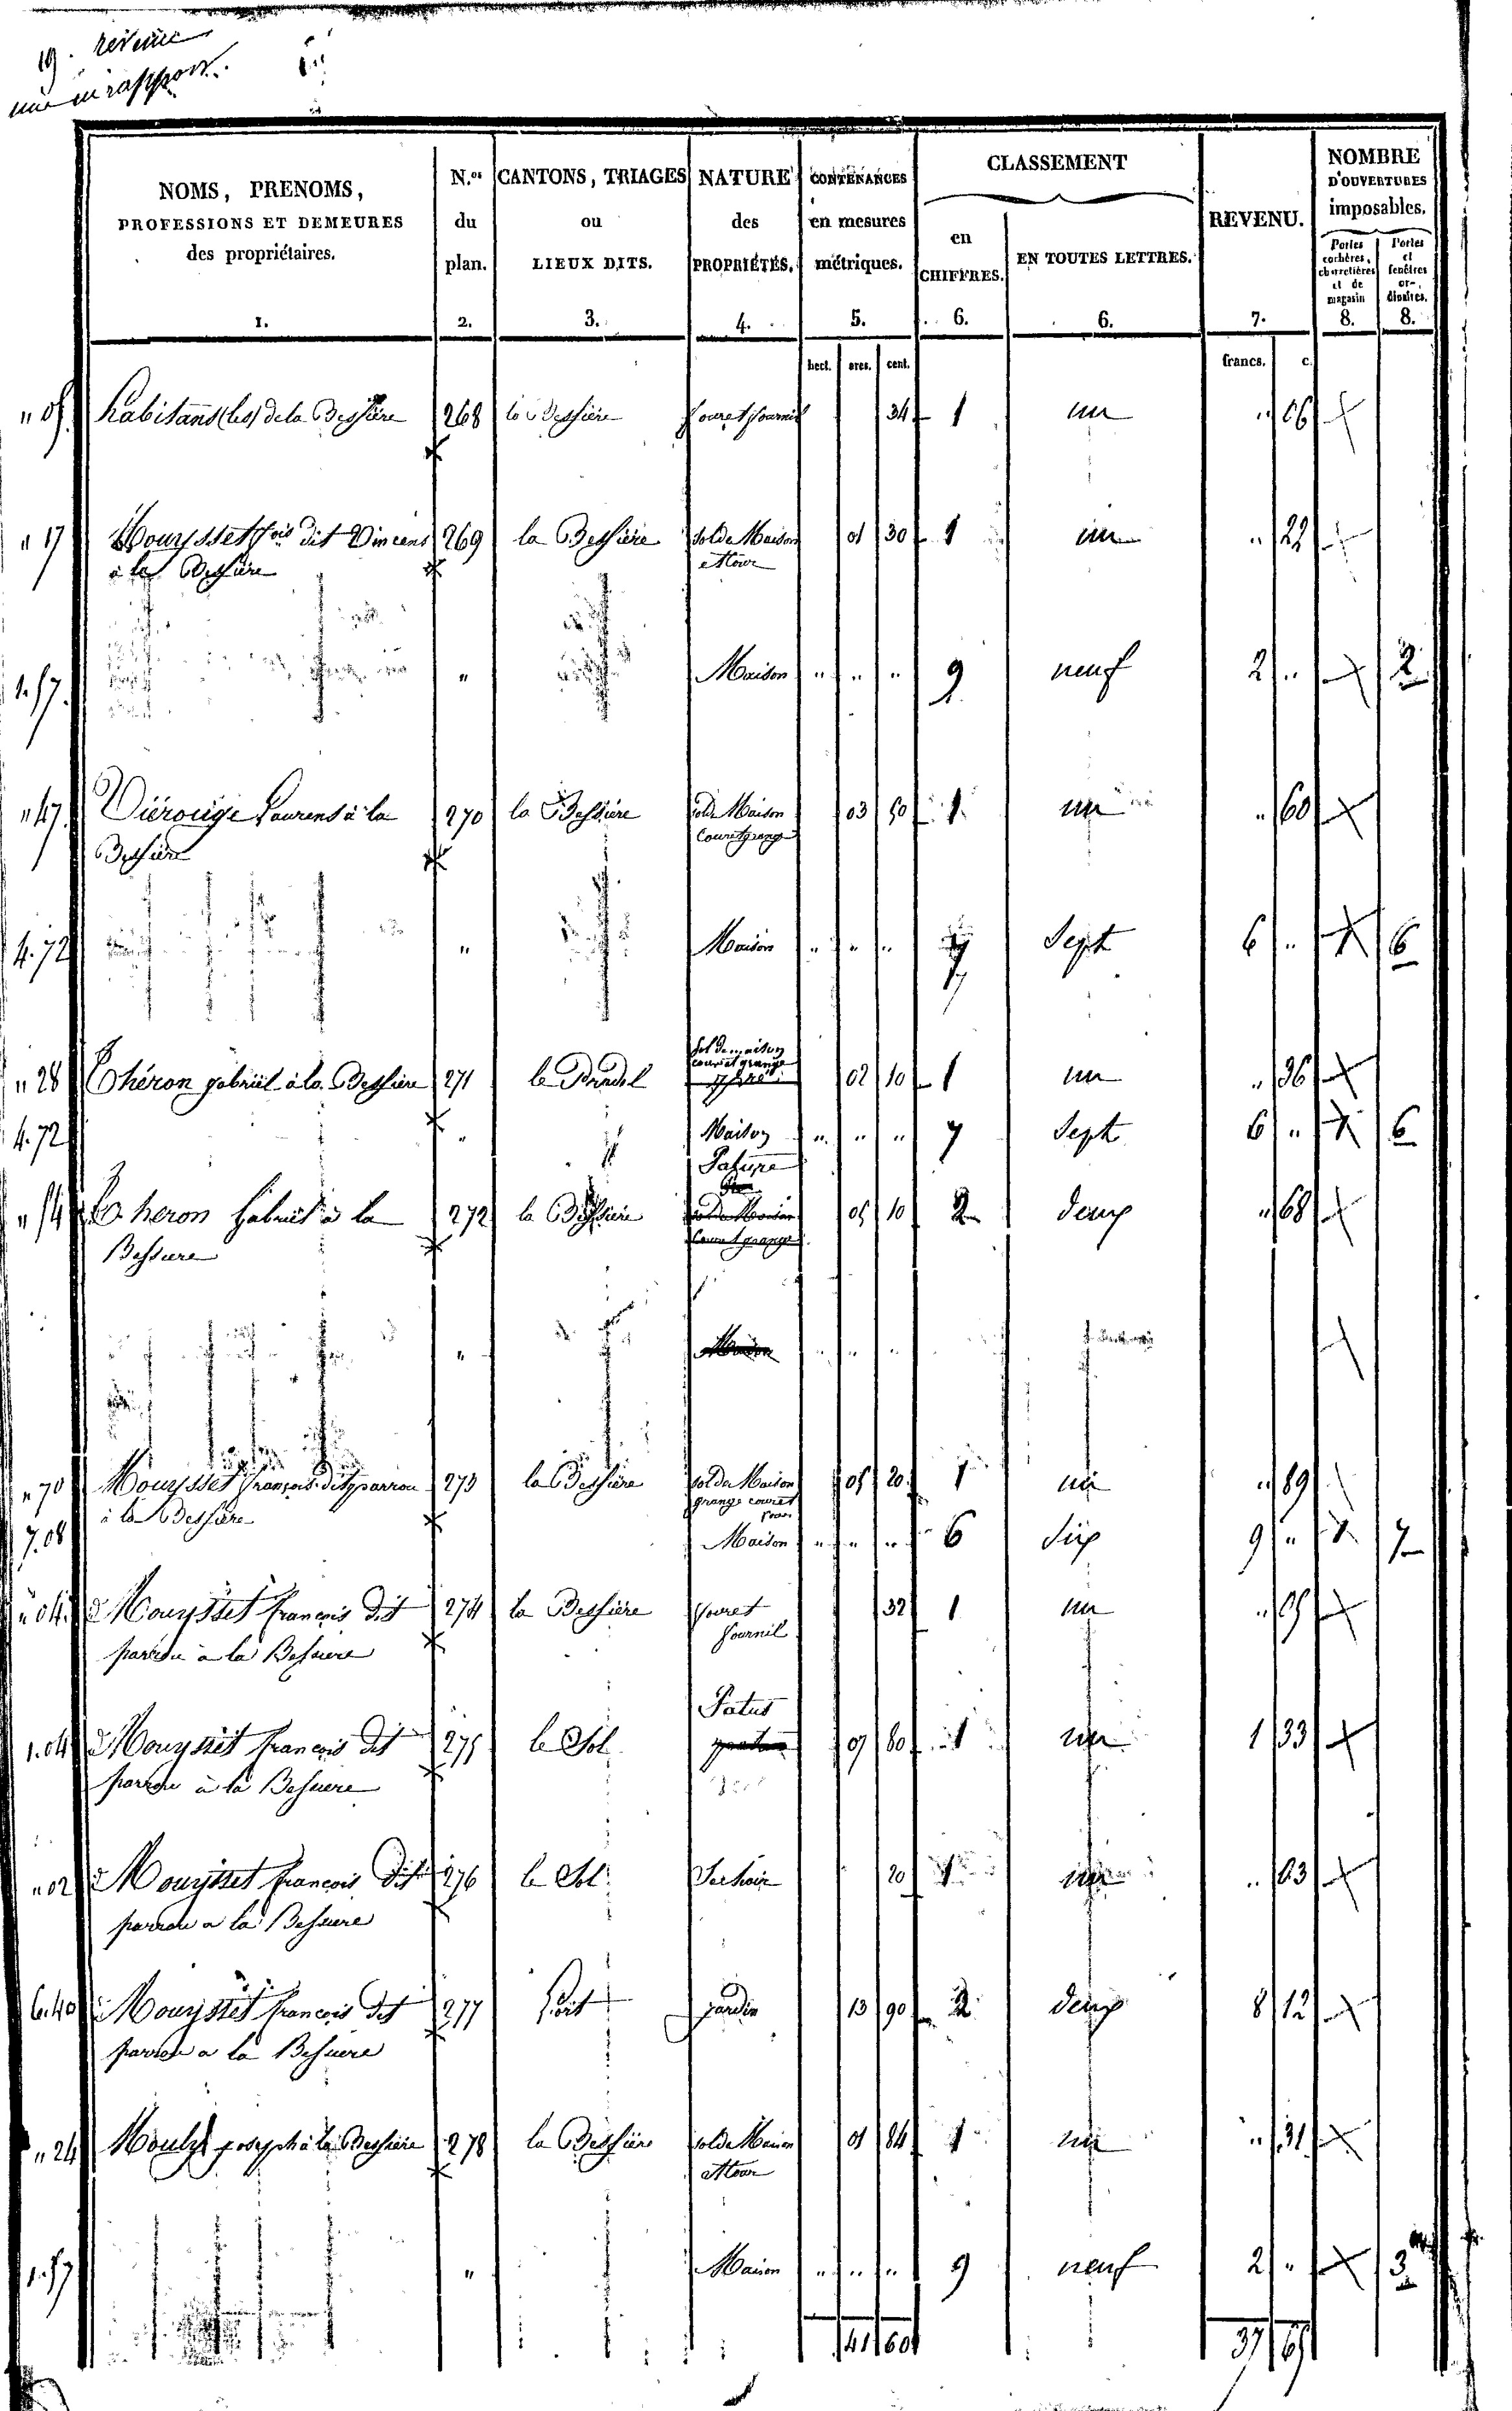 19. revenu
NOMS, PRENOMS,
PROFESSIONS ET DEMEURES
des propriétaires.
1.
N.os
du
plan.
2.
CANTONS, TRIAGES
ou
LIEUX DITS.
3.
NATURE
des
PROPRIÉTÉS.
4.
CONTENANCES
en mesures
métriques.
5.
CLASSEMENT
en
CHIFFRES.
6.
EN TOUTES LETTRES.
6.
REVENU.
7.
NOMBRE
D'OUVERTURES
imposables.
Portes
cochères,
charretières
et de
magasin
8.
Portes
et
fenêtres
or-
dinaires.
8.
hect. ares. cent. francs. c.
habitans (les) de la Bessière 268 la Bessière four et fournil 34 1 un " 06
" 17 Mouysset fois dit Vincens 269 la Bessière sol de Maison 01 30 1 un " 22
à la Bessière et Cour
1.57. " Maison " " " 9 neuf 2 " 2
" 47. Viérouge Laurens à la 270 la Bessière sol de Maison 03 50 1 un " 60
Bessière Cour et grange
4.72 " Maison " " " 7 Sept 6 " 6
sol de maison
cour et grange
" 28 Théron gabriel à la Bessière 271 le Pradel 02 10 1 un " 36
4.72 " Maison " " " 7 Sept 6 " 6
Pature
" 54 Theron Gabriel à la 272 la Bessière sol de Maison 05 10 2 deux " 68
Bessiere Cour et grange
" Maison " " "
" 70 Mouysset françois dit parrou 273 la Bessière sol de Maison 05 20 1 un " 89
à la Bessière grange cour et
four
7.08 Maison " " " 6 Six 9 " 7
" 04. Mouysset françois dit 274 la Bessière four et 32 1 un " 05
parrou à la Bessiere fournil
Patus
1.04 Mouysset françois dit 275 le Sol 07 80 1 un 1 33
parrou à la Bessiere
" 02 Mouysset françois dit 276 le Sol Sechoir 20 1 un " 03
parrou a la Bessiere
6.40 Mouysset françois dit 277 jardin 13 90 2 deux 8 12
parrou a la Bessiere
" 24 Mouly joseph à la Bessière 278 la Bessière sol de Maison 01 84 1 un " 31
et Cour
1.57 " Maison " " " 9 neuf 2 " 3
41 60 37 65